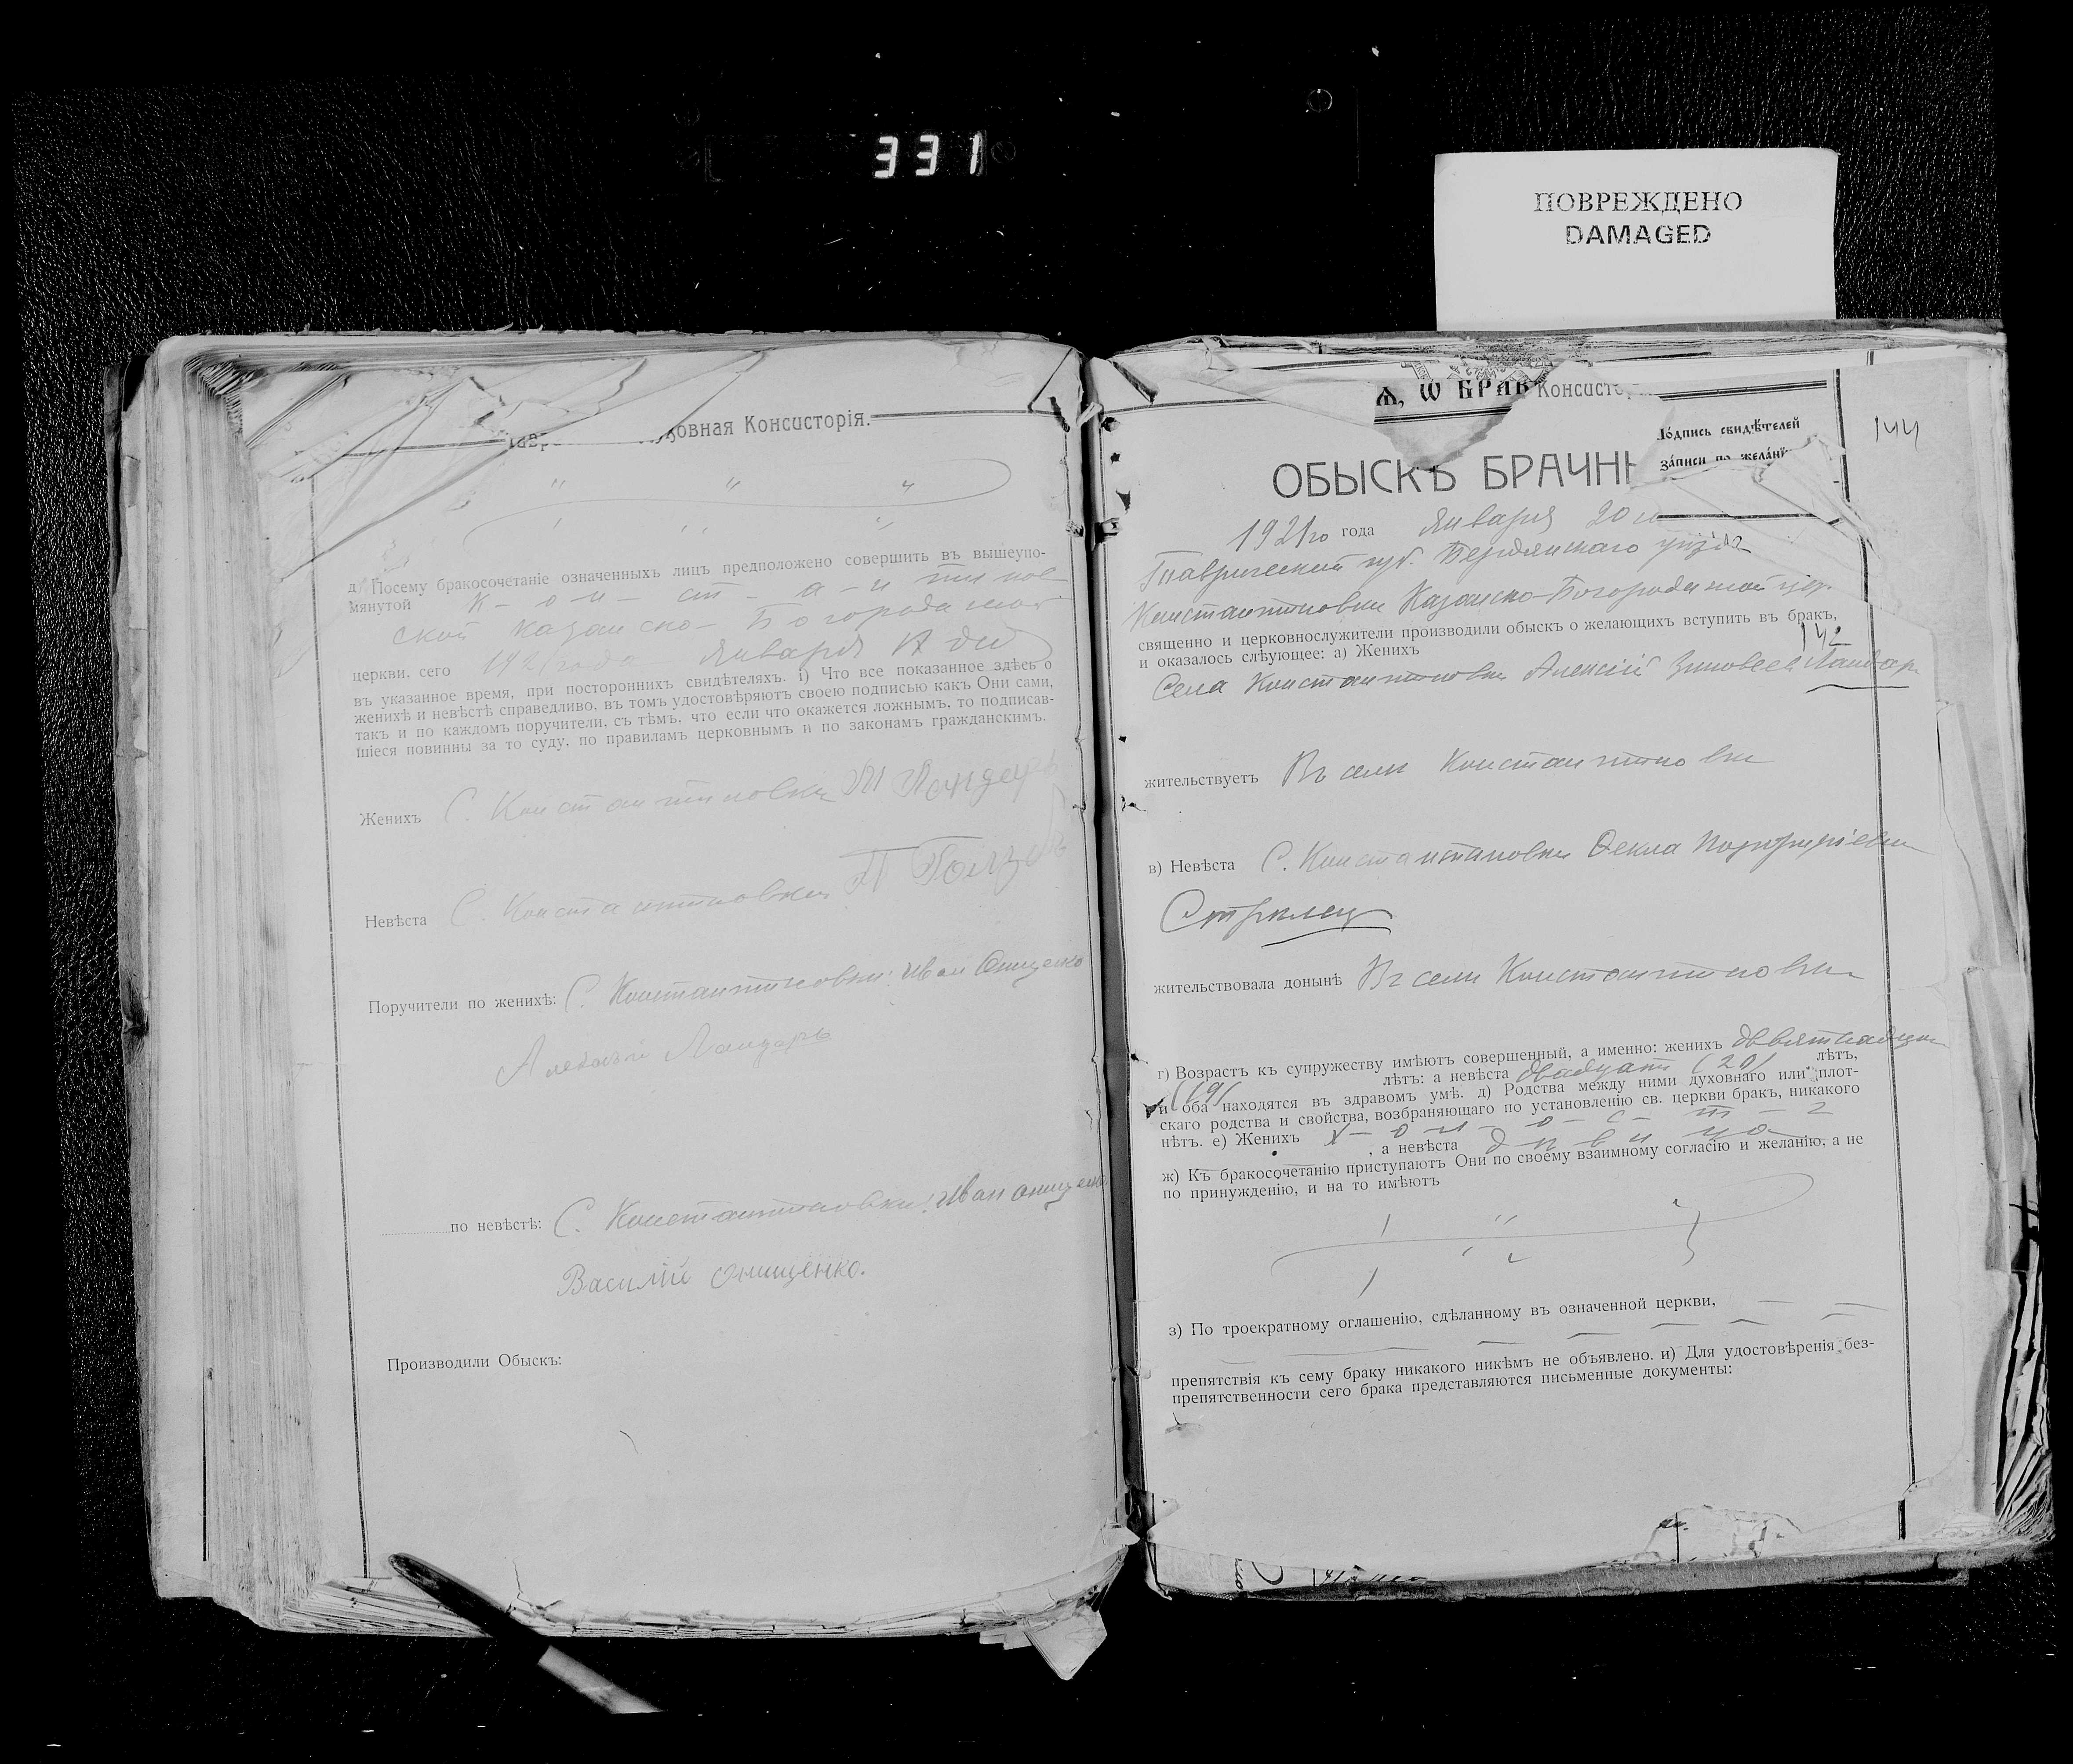 331
ПОВРЕЖДЕНО
DAMAGED
овная Консисторія.
д) Посему бракосочетаніе означенныхъ лицъ предположено совершить въ вышеупо-
мянутой К-о-н-ст-а-н тинов
ской Казанско-Богородичной
церкви, сего 1921 года Января
въ указанное время, при постороннихъ свидѣтеляхъ. і) Что все показанное здѣсь о
женихѣ и невѣстѣ справедливо, въ томъ удостовѣряютъ своею подписью какъ Они сами,
такъ и по каждомъ поручители, съ тѣмъ, что если что окажется ложнымъ, то подписав-
шіеся повинны за то суду, по правиламъ церковнымъ и по законамъ гражданскимъ.
Женихъ С. Константиновки
Невѣста С. Константиновки
Поручители по женихѣ: С. Константиновки: Иван Онищенко
Алексѣй Ландарь
по невѣстѣ: С. Константиновки: Иван Онищенко
Василій Онищенко.
Производили Обыскъ:
Ѧ, Ѡ БРАК Консисто
Пóдпись свидѣтелей
зáписи по желáнї
144
ОБЫСКЪ БРАЧН
1921го года Января 20го
Таврической губ. Бердянскаго уѣзда
Константиновки Казанско-Богородичной цер.
священно и церковнослужители производили обыскъ о желающихъ вступить въ бракъ,
и оказалось слѣующее: а) Женихъ 142
Села Константиновки Алексій Зиновеев Ландар
жительствуетъ Въ селѣ Константиновки
в) Невѣста С. Константиновки Ѳекла Порфиріевна
Стрѣлец
жительствовала донынѣ Въ селѣ Константиновки
г) Возрастъ къ супружеству имѣютъ совершенный, а именно: женихъ девятнадцати
(19) лѣтъ: а невѣста двадцати (20) лѣтъ,
и оба находятся въ здравомъ умѣ. д) Родства между ними духовнаго или плот-
скаго родства и свойства, возбраняющаго по установленію св. церкви бракъ, никакого
нѣтъ. е) Женихъ х-о-л-о-с-т-
, а невѣста д ѣ в и ца
ж) Къ бракосочетанію приступаютъ Они по своему взаимному согласію и желанію, а не
по принужденію, и на то имѣютъ
з) По троекратному оглашенію, сдѣланному въ означенной церкви,
препятствія къ сему браку никакого никѣмъ не объявлено. и) Для удостовѣренія без-
препятственности сего брака представляются письменные документы: